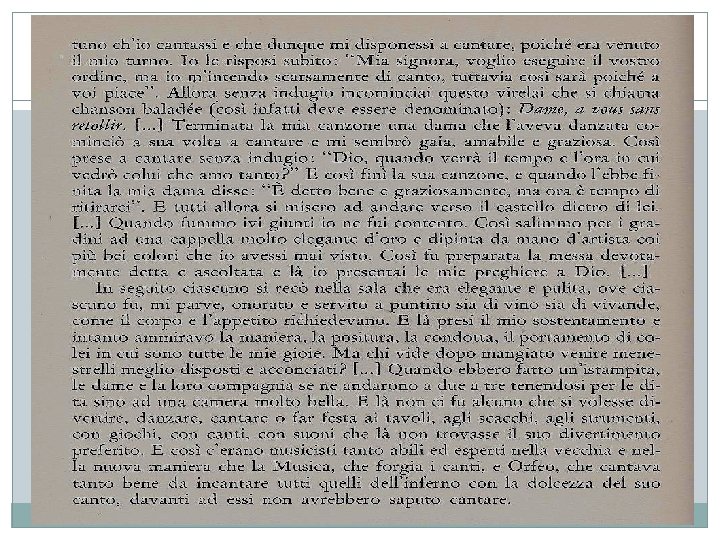 tuno ch'io cantassi e che dunque mi disponessi a cantare, poiché era venuto
il mio turno. Io le risposi subito: "Mia signora, voglio eseguire il vostro
ordine, ma io m'intendo scarsamente di canto, tuttavia così sarà poiché a
voi piace". Allora senza indugio incominciai questo virelai che si chiama
chanson baladée (così infatti deve essere denominato): Dame, a vous sans
retollir. [...] Terminata la mia canzone una dama che l'aveva danzata co-
minciò a sua volta a cantare e mi sembrò gaia, amabile e graziosa. Così
prese a cantare senza indugio: "Dio, quando verrà il tempo e l'ora in cui
vedrò colui che amo tanto?" E così finì la sua canzone, e quando l'ebbe fi-
nita la mia dama disse: "È detto bene e graziosamente, ma ora è tempo di
ritirarci". E tutti allora si misero ad andare verso il castello dietro di lei.
[...] Quando fummo ivi giunti io ne fui contento. Così salimmo per i gra-
dini ad una cappella molto elegante d'oro e dipinta da mano d'artista coi
più bei colori che io avessi mai visto. Così fu preparata la messa devota-
mente detta e ascoltata e là io presentai le mie preghiere a Dio. [...]
In seguito ciascuno si recò nella sala che era elegante e pulita, ove cia-
scuno fu, mi parve, onorato e servito a puntino sia di vino sia di vivande,
come il corpo e l'appetito richiedevano. E là presi il mio sostentamento e
intanto ammiravo la maniera, la positura, la condotta, il portamento di co-
lei in cui sono tutte le mie gioie. Ma chi vide dopo mangiato venire mene-
strelli meglio disposti e acconciati? [...] Quando ebbero fatto un'istampita,
le dame e la loro compagnia se ne andarono a due a tre tenendosi per le di-
ta sino ad una camera molto bella. E là non ci fu alcuno che si volesse di-
vertire, danzare, cantare o far festa ai tavoli, agli scacchi, agli strumenti,
con giochi, con canti, con suoni che là non trovasse il suo divertimento
preferito. E così c'erano musicisti tanto abili ed esperti nella vecchia e nel-
la nuova maniera che la Musica, che forgia i canti, e Orfeo, che cantava
tanto bene da incantare tutti quelli dell'inferno con la dolcezza del suo
canto, davanti ad essi non avrebbero saputo cantare.